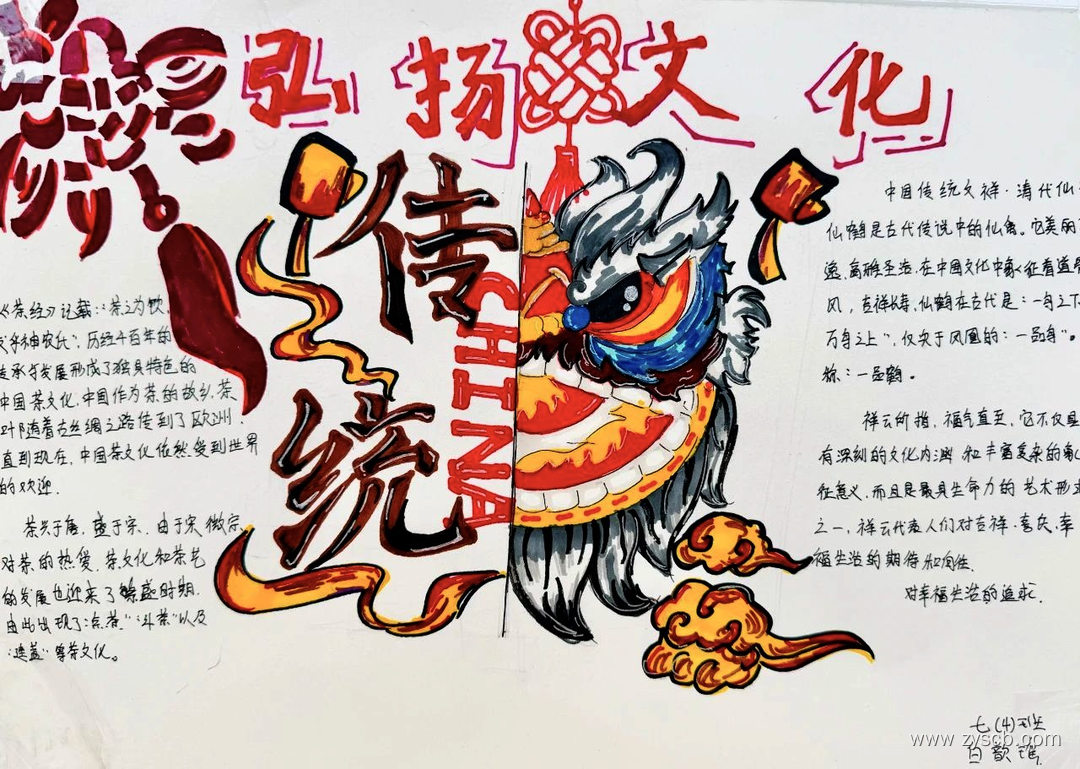 弘扬文化
传统
CHINA
《茶经》记载：“茶之为饮，
发乎神农氏”，历经千百年的
传承与发展形成了独具特色的
中国茶文化，中国作为茶的故乡，茶
叶随着古丝绸之路传到了欧洲，
直到现在，中国茶文化依然受到世界
的欢迎．
茶兴于唐，盛于宋、由于宋微宗
对茶的热爱，茶文化和茶艺
的发展也迎来了繁盛时期．
由此出现了“点茶”“斗茶”以及
等茶文化。
中国传统文祥·清代仙
仙鹤是古代传说中的仙禽。它美丽
逸，高雅圣洁，在中国文化中象征着道
风，吉祥长寿，仙鹤在古代是：一鸟之下
万鸟之上”，仅次于凤凰的：一品鸟”。
称：一品鹤。
祥云所指，福气直至，它不仅
有深刻的文化内涵和丰富多采的
征意义，而且是最具生命力的艺术形
之一，祥云代表人们对吉祥·喜庆、幸
福生活的期待和向往．
对幸福生活的追求．
七(4)班
白歆
www.zyscb.com